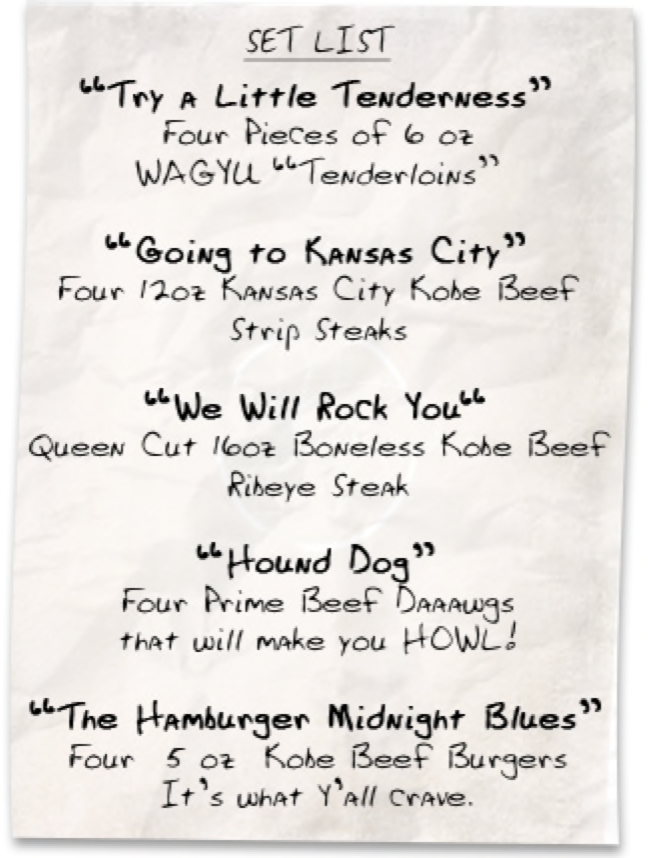 SET LIST
“Try A Little Tenderness”
Four Pieces of 6 oz
WAGYU “Tenderloins”
“Going to Kansas City”
Four 12oz Kansas City Kobe Beef
Strip Steaks
“We Will Rock You“
Queen Cut 16oz Boneless Kobe Beef
Ribeye Steak
“Hound Dog”
Four Prime Beef Daaawgs
that will make you HOWL!
“The Hamburger Midnight Blues”
Four 5 oz Kobe Beef Burgers
It’s what Y’all crave.